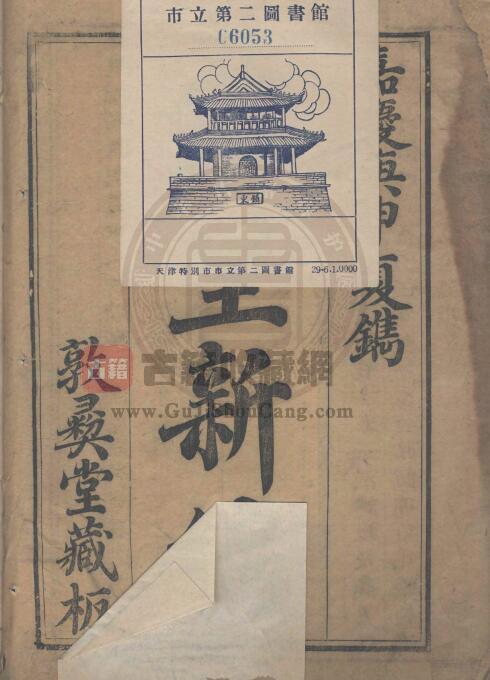 市立第二圖書館
C6053
鎮東
天津特別市市立第二圖書館 29-6.1.0000
嘉慶庚申夏鐫
新
敦彝堂藏板
古籍
古籍收藏網
www.GuJiShouCang.com